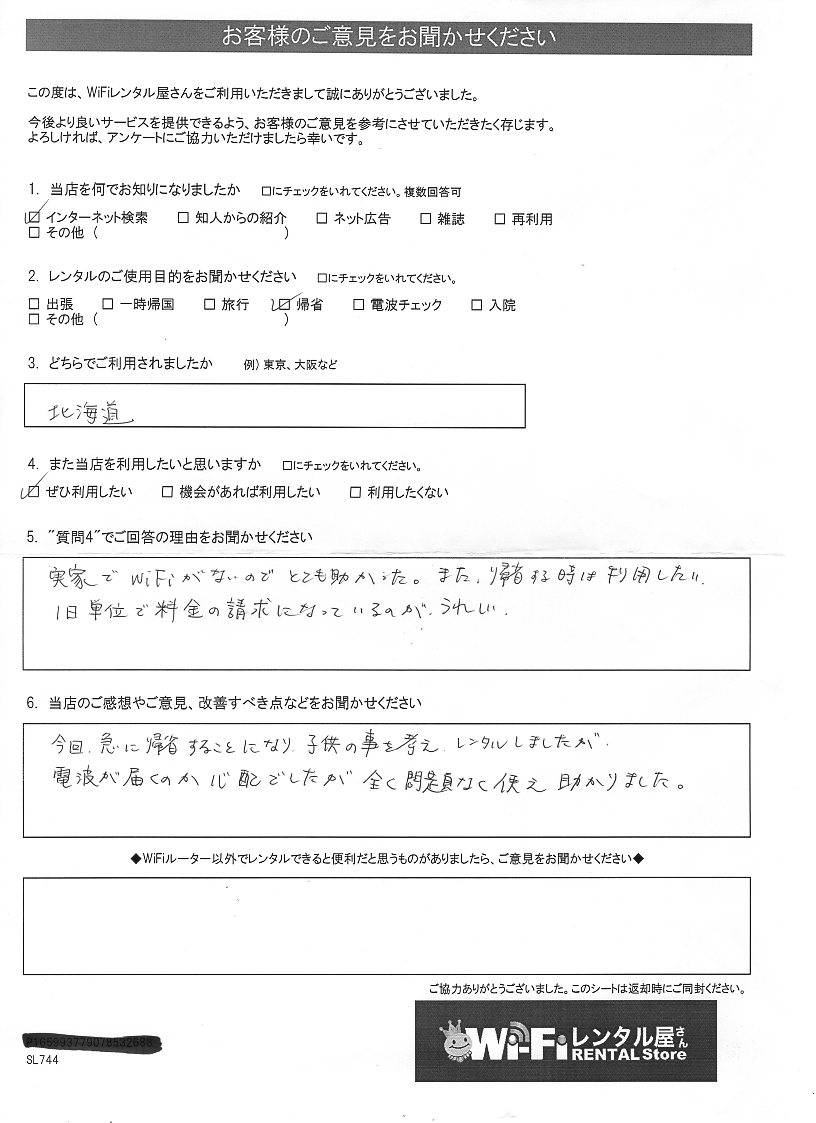 お客様のご意見をお聞かせください
この度は、WiFiレンタル屋さんをご利用いただきまして誠にありがとうございました。
今後より良いサービスを提供できるよう、お客様のご意見を参考にさせていただきたく存じます。
よろしければ、アンケートにご協力いただけましたら幸いです。
1. 当店を何でお知りになりましたか □にチェックをいれてください。複数回答可
☑ インターネット検索 □ 知人からの紹介 □ ネット広告 □ 雑誌 □ 再利用
□ その他 ( )
2. レンタルのご使用目的をお聞かせください □にチェックをいれてください。
□ 出張 □ 一時帰国 □ 旅行 ☑ 帰省 □ 電波チェック □ 入院
□ その他 ( )
3. どちらでご利用されましたか 例) 東京、大阪など
北海道
4. また当店を利用したいと思いますか □にチェックをいれてください。
☑ ぜひ利用したい □ 機会があれば利用したい □ 利用したくない
5. "質問4"でご回答の理由をお聞かせください
実家でWiFiがないのでとても助かった。また、帰省する時は利用したい.
1日単位で料金の請求になっているのが、うれしい.
6. 当店のご感想やご意見、改善すべき点などをお聞かせください
今回、急に帰省することになり、子供の事を考え、レンタルしましたが、
電波が届くのか心配でしたが全く問題なく使え助かりました。
◆WiFiルーター以外でレンタルできると便利だと思うものがありましたら、ご意見をお聞かせください◆
ご協力ありがとうございました。このシートは返却時にご同封ください。
SL744
Wi-Fi レンタル屋さん
RENTAL Store